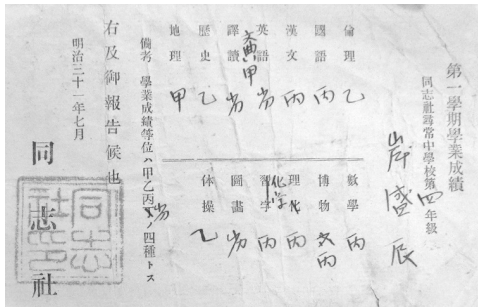 第一學期學業成績
同志社尋常中學校第四年級
岸盛辰
倫理 乙
國語 丙
漢文 丙
英語 文典甲
譯讀
歷史 乙
地理 甲
數學 丙
博物 丙
理化 化学 丙
習字 丙
圖畫
体操 乙
備考 學業成績等位ハ甲乙丙ノ四種トス
右及御報告候也
明治三十一年七月
同志社